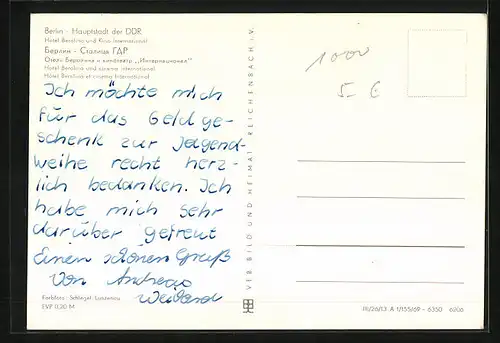 Berlin - Hauptstadt der DDR
Hotel Berolina und Kino International
Берлин - Столица ГДР
Отель Беролина и кинотеатр „Интернационал"
Hotel Berolina and cinema International
Hôtel Berolina et cinéma International
Ich möchte mich
für das Geldge-
schenk zur Jugend-
weihe recht herz-
lich bedanken. Ich
habe mich sehr
darüber gefreut
Einen schönen Gruß
Von Andreas
Farbfoto: Schlegel, Lunzenau
EVP 0,20 M
VEB BILD UND HEIMAT REICHENBACH i. V.
1000
5 €
III/26/13 A 1/155/69 - 6350 6206